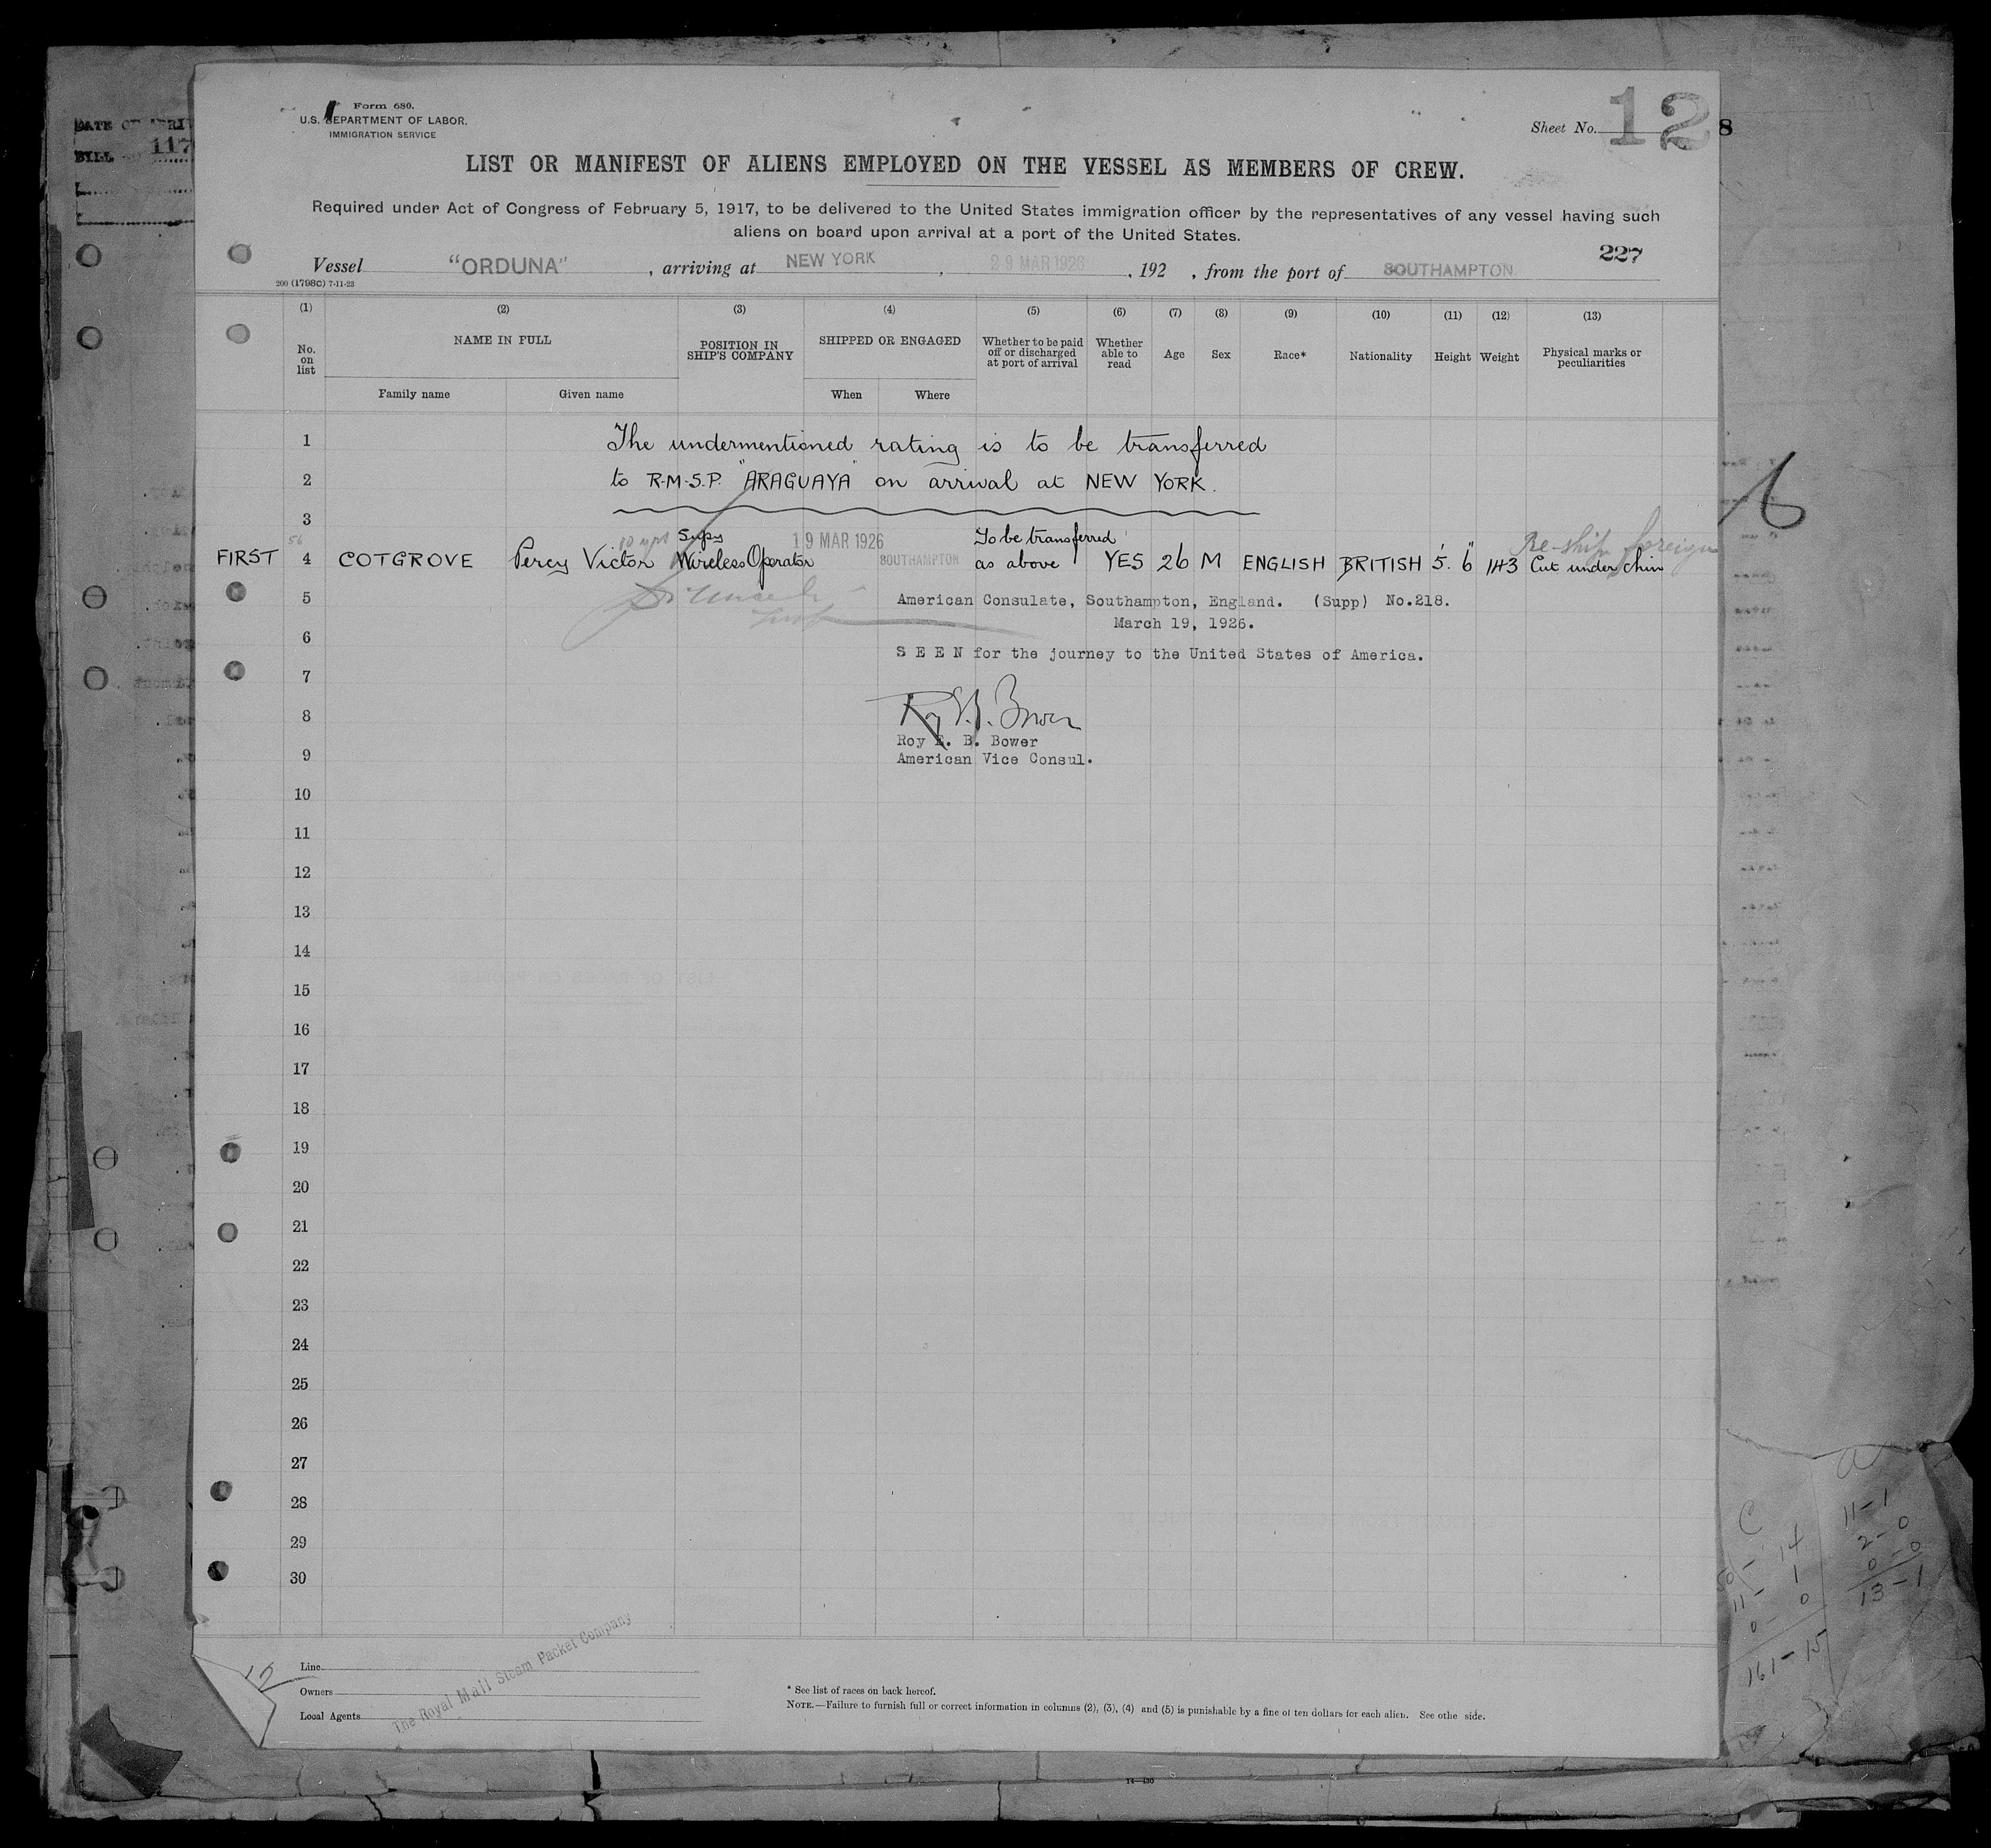 Form 680.
U.S. DEPARTMENT OF LABOR.
IMMIGRATION SERVICE
Sheet No. 12
8
LIST OR MANIFEST OF ALIENS EMPLOYED ON THE VESSEL AS MEMBERS OF CREW.
Required under Act of Congress of February 5, 1917, to be delivered to the United States immigration officer by the representatives of any vessel having such
aliens on board upon arrival at a port of the United States.
227
Vessel "ORDUNA", arriving at NEW YORK, 29 MAR 1926, 192 , from the port of SOUTHAMPTON
200 (1798C) 7-11-23
(1) (2) (3) (4) (5) (6) (7) (8) (9) (10) (11) (12) (13)
No. on list
NAME IN FULL
Family name
Given name
POSITION IN SHIP'S COMPANY
SHIPPED OR ENGAGED
When
Where
Whether to be paid off or discharged at port of arrival
Whether able to read
Age
Sex
Race*
Nationality
Height
Weight
Physical marks or peculiarities
1 The undermentioned rating is to be transferred
2 to R.M.S.P. "ARAGUAYA" on arrival at NEW YORK.
3
Re-ship foreign
FIRST 4 COTGROVE Percy Victor Supy Wireless Operator 19 MAR 1926 SOUTHAMPTON To be transferred as above YES 26 M ENGLISH BRITISH 5.6" 143 Cut under chin
5 American Consulate, Southampton, England. (Supp) No.218.
March 19, 1926.
6
SEEN for the journey to the United States of America.
7
8
Roy E. B. Bower
9 American Vice Consul.
10
11
12
13
14
15
16
17
18
19
20
21
22
23
24
25
26
27
28
29
30
12
Line
Owners
Local Agents
The Royal Mail Steam Packet Company
* See list of races on back hereof.
NOTE.—Failure to furnish full or correct information in columns (2), (3), (4) and (5) is punishable by a fine of ten dollars for each alien. See othe side.
C
14
11 - 1
0 - 0
161 - 15
11 - 1
2 - 0
0 - 0
13 - 1